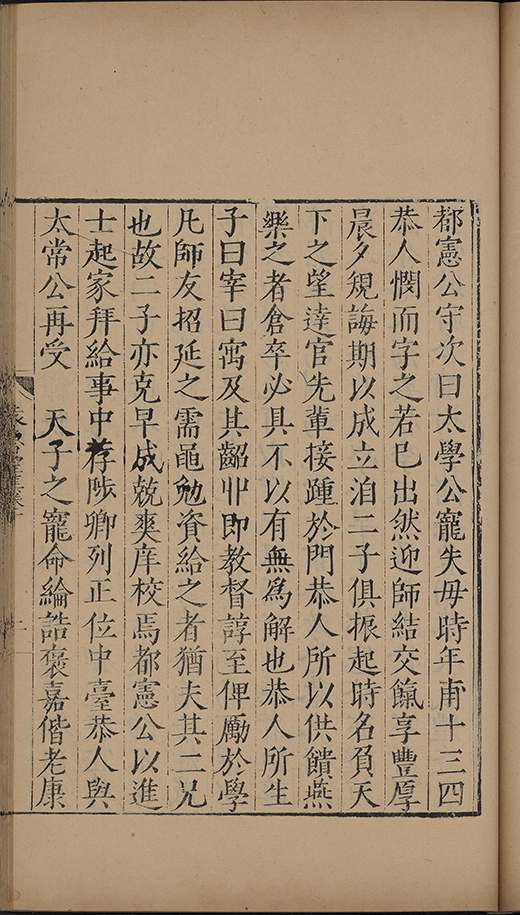 都憲公守次曰太學公寵失母時年甫十三四
恭人憫而字之若巳出然迎師結交餼享豐厚
晨夕規誨期以成立洎二子俱振起時名負天
下之望達官先輩接踵於門恭人所以供饋燕
樂之者倉卒必具不以有無爲解也恭人所生
子曰宰曰寓及其齠丱即教督諄至俾勵於學
凡師友招延之需黽勉資給之者猶夫其二兄
也故二子亦克早成兢爽庠校焉都憲公以進
士起家拜給事中荐陟卿列正位中臺恭人與
太常公再受　天子之寵命綸誥褒嘉偕老康